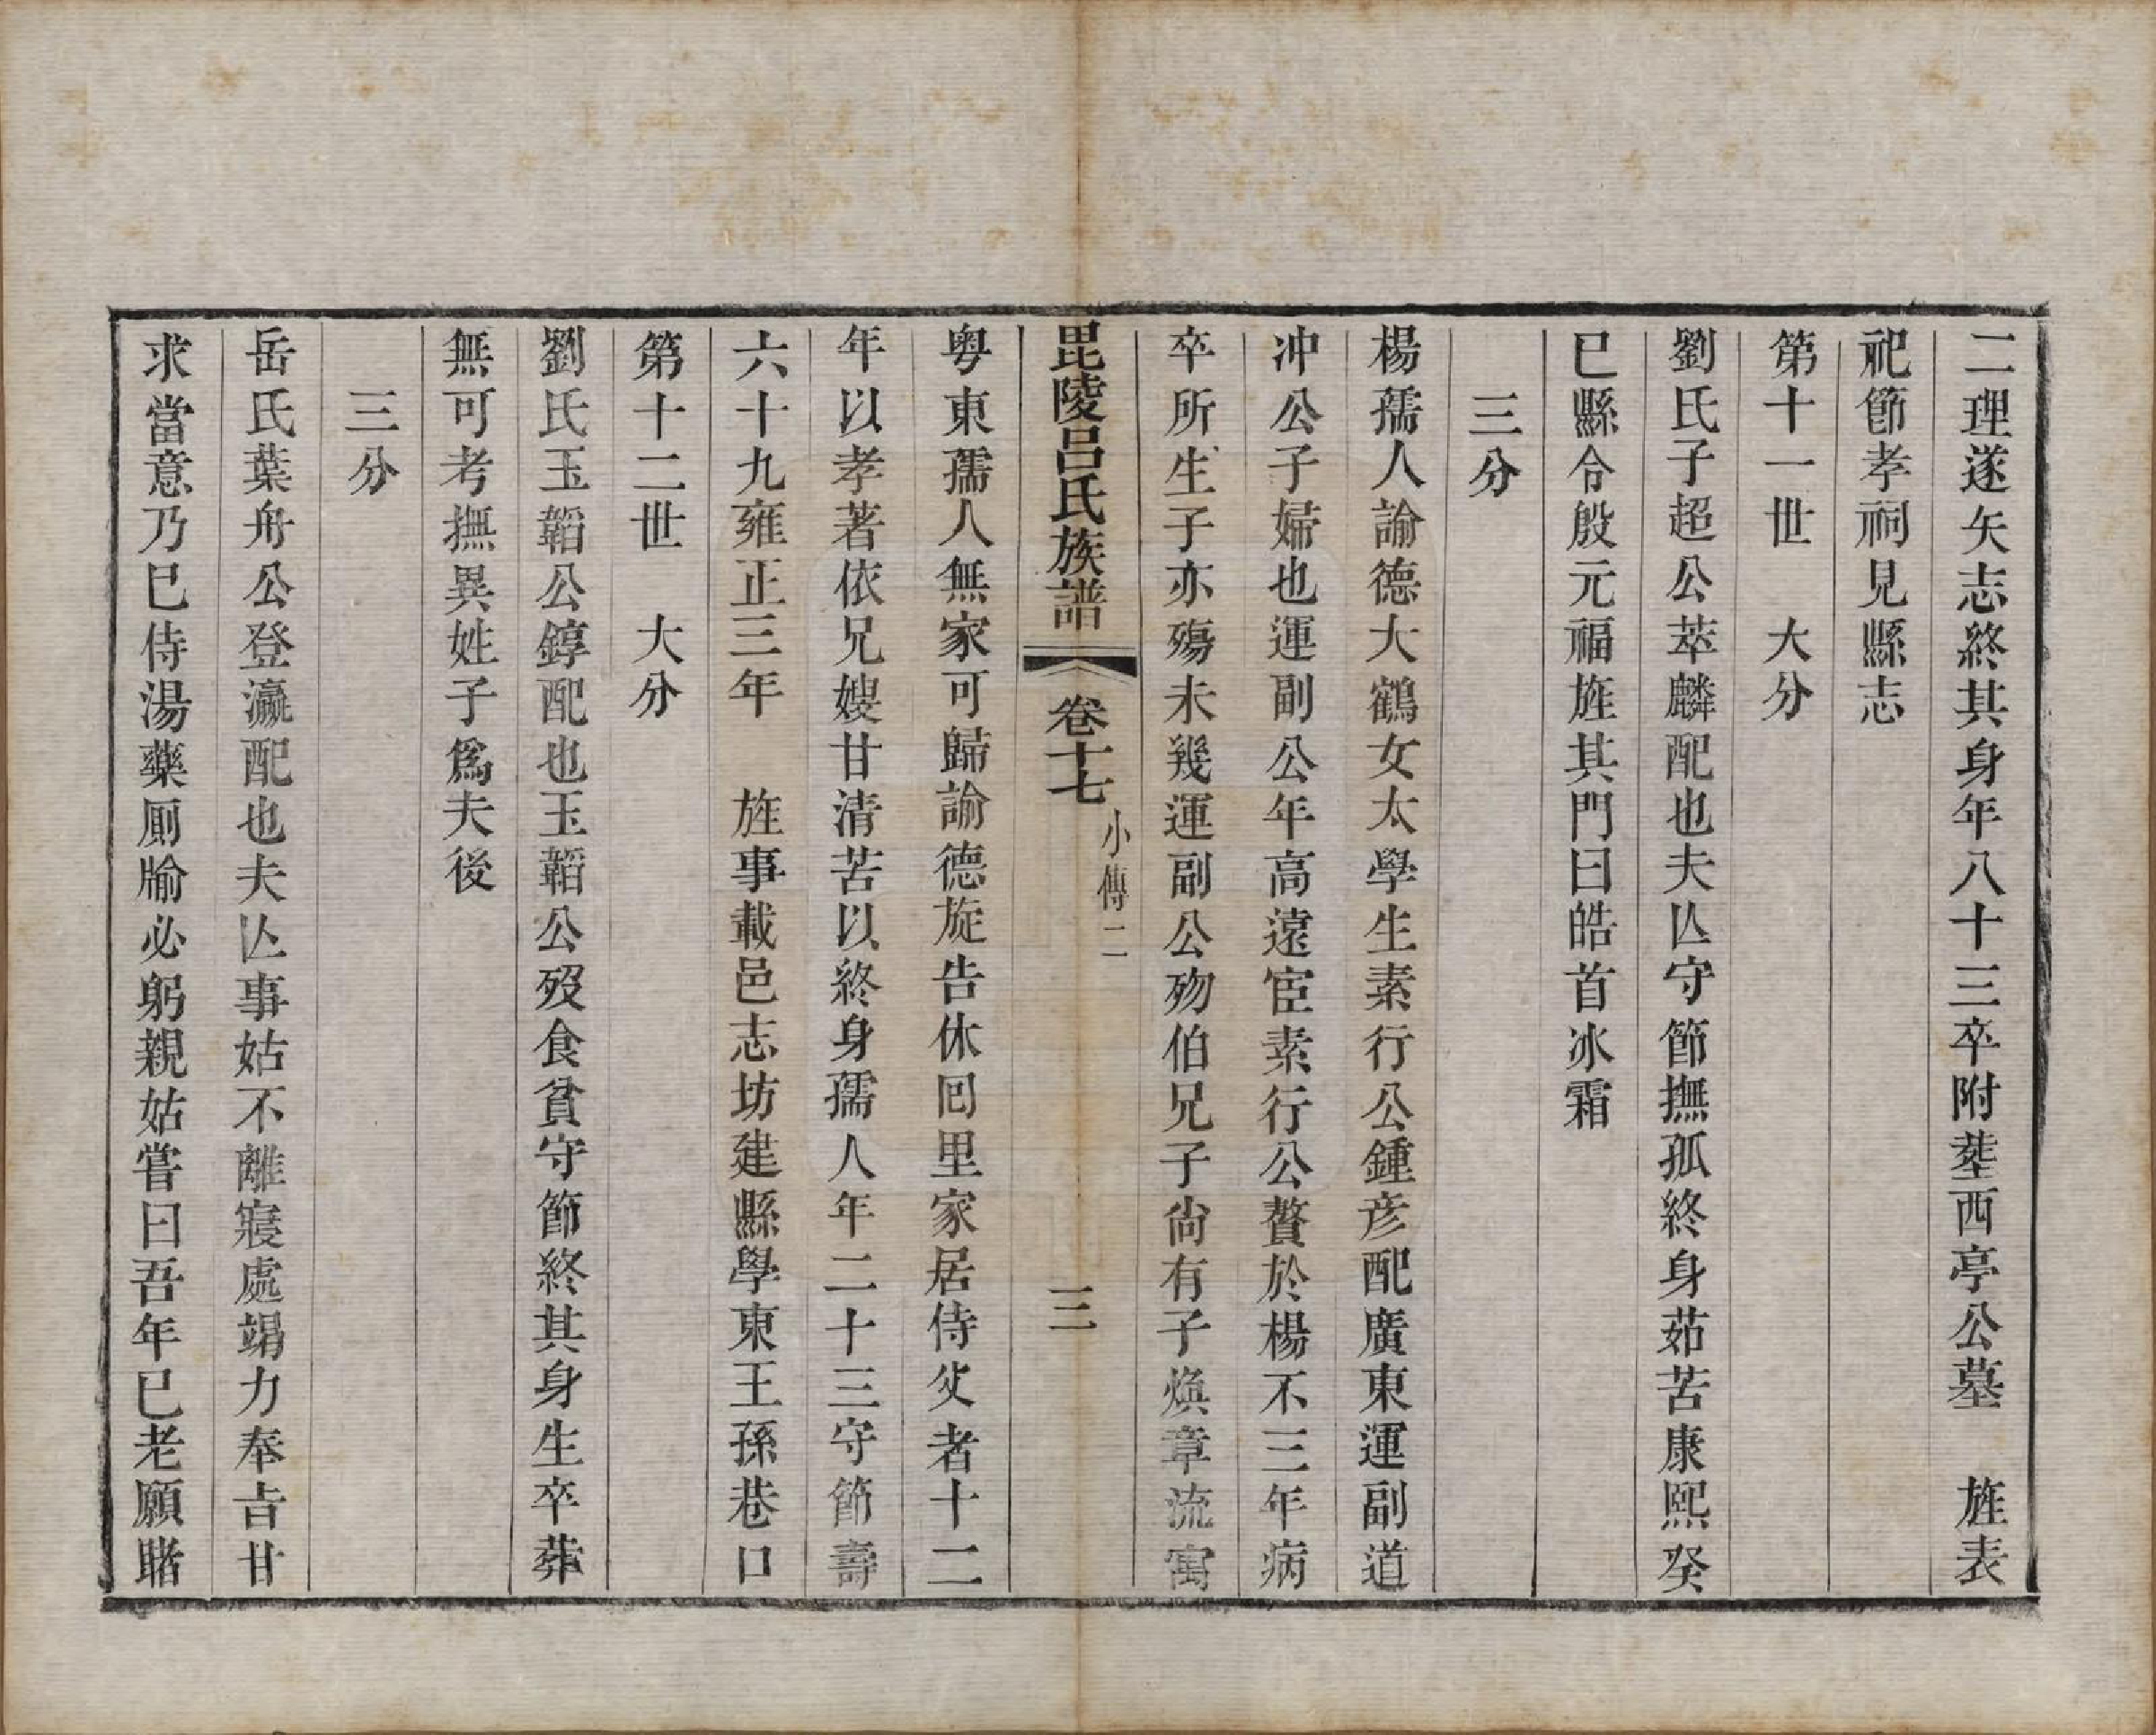 二理遂矢志終其身年八十三卒附塟西亭公墓　旌表
祀節孝祠見縣志
第十一世　大分
劉氏子超公萃麟配也夫亾守節撫孤終身茹苦康熙癸
巳縣令殷元福旌其門曰皓首冰霜
三分
楊孺人諭德大鶴女太學生素行公鍾彦配廣東運副道
冲公子婦也運副公年高遠宦素行公贅於楊不三年病
卒所生子亦殤未幾運副公歾伯兄子尙有子煥章流寓
毘陵呂氏族譜　卷十七　小傳二　三
粤東孺人無家可歸諭德旋告休囘里家居侍父者十二
年以孝著依兄嫂甘清苦以終身孺人年二十三守節壽
六十九雍正三年　旌事載邑志坊建縣學東王孫巷口
第十二世　大分
劉氏玉韜公錞配也玉韜公歿食貧守節終其身生卒葬
無可考撫異姓子爲夫後
三分
岳氏葉舟公登瀛配也夫亾事姑不離寢處竭力奉旨甘
求當意乃巳侍湯藥厠牏必躬親姑嘗曰吾年已老願賭